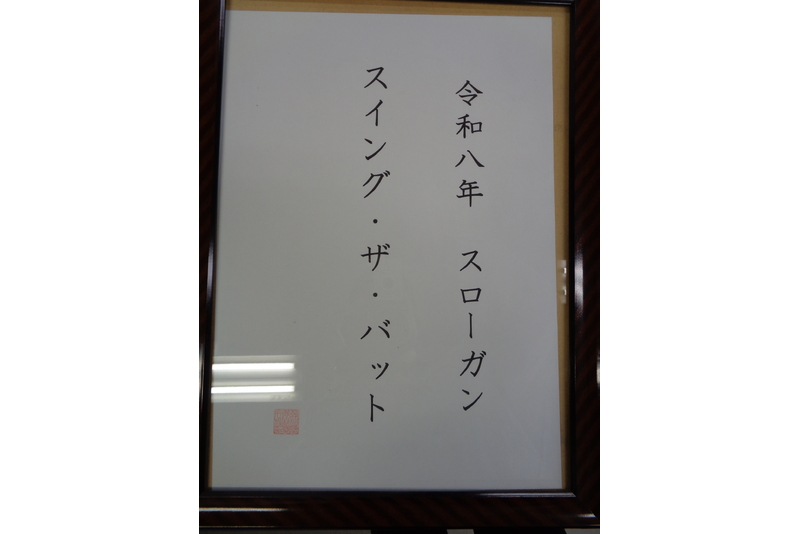 令和八年　スローガン
スイング・ザ・バット